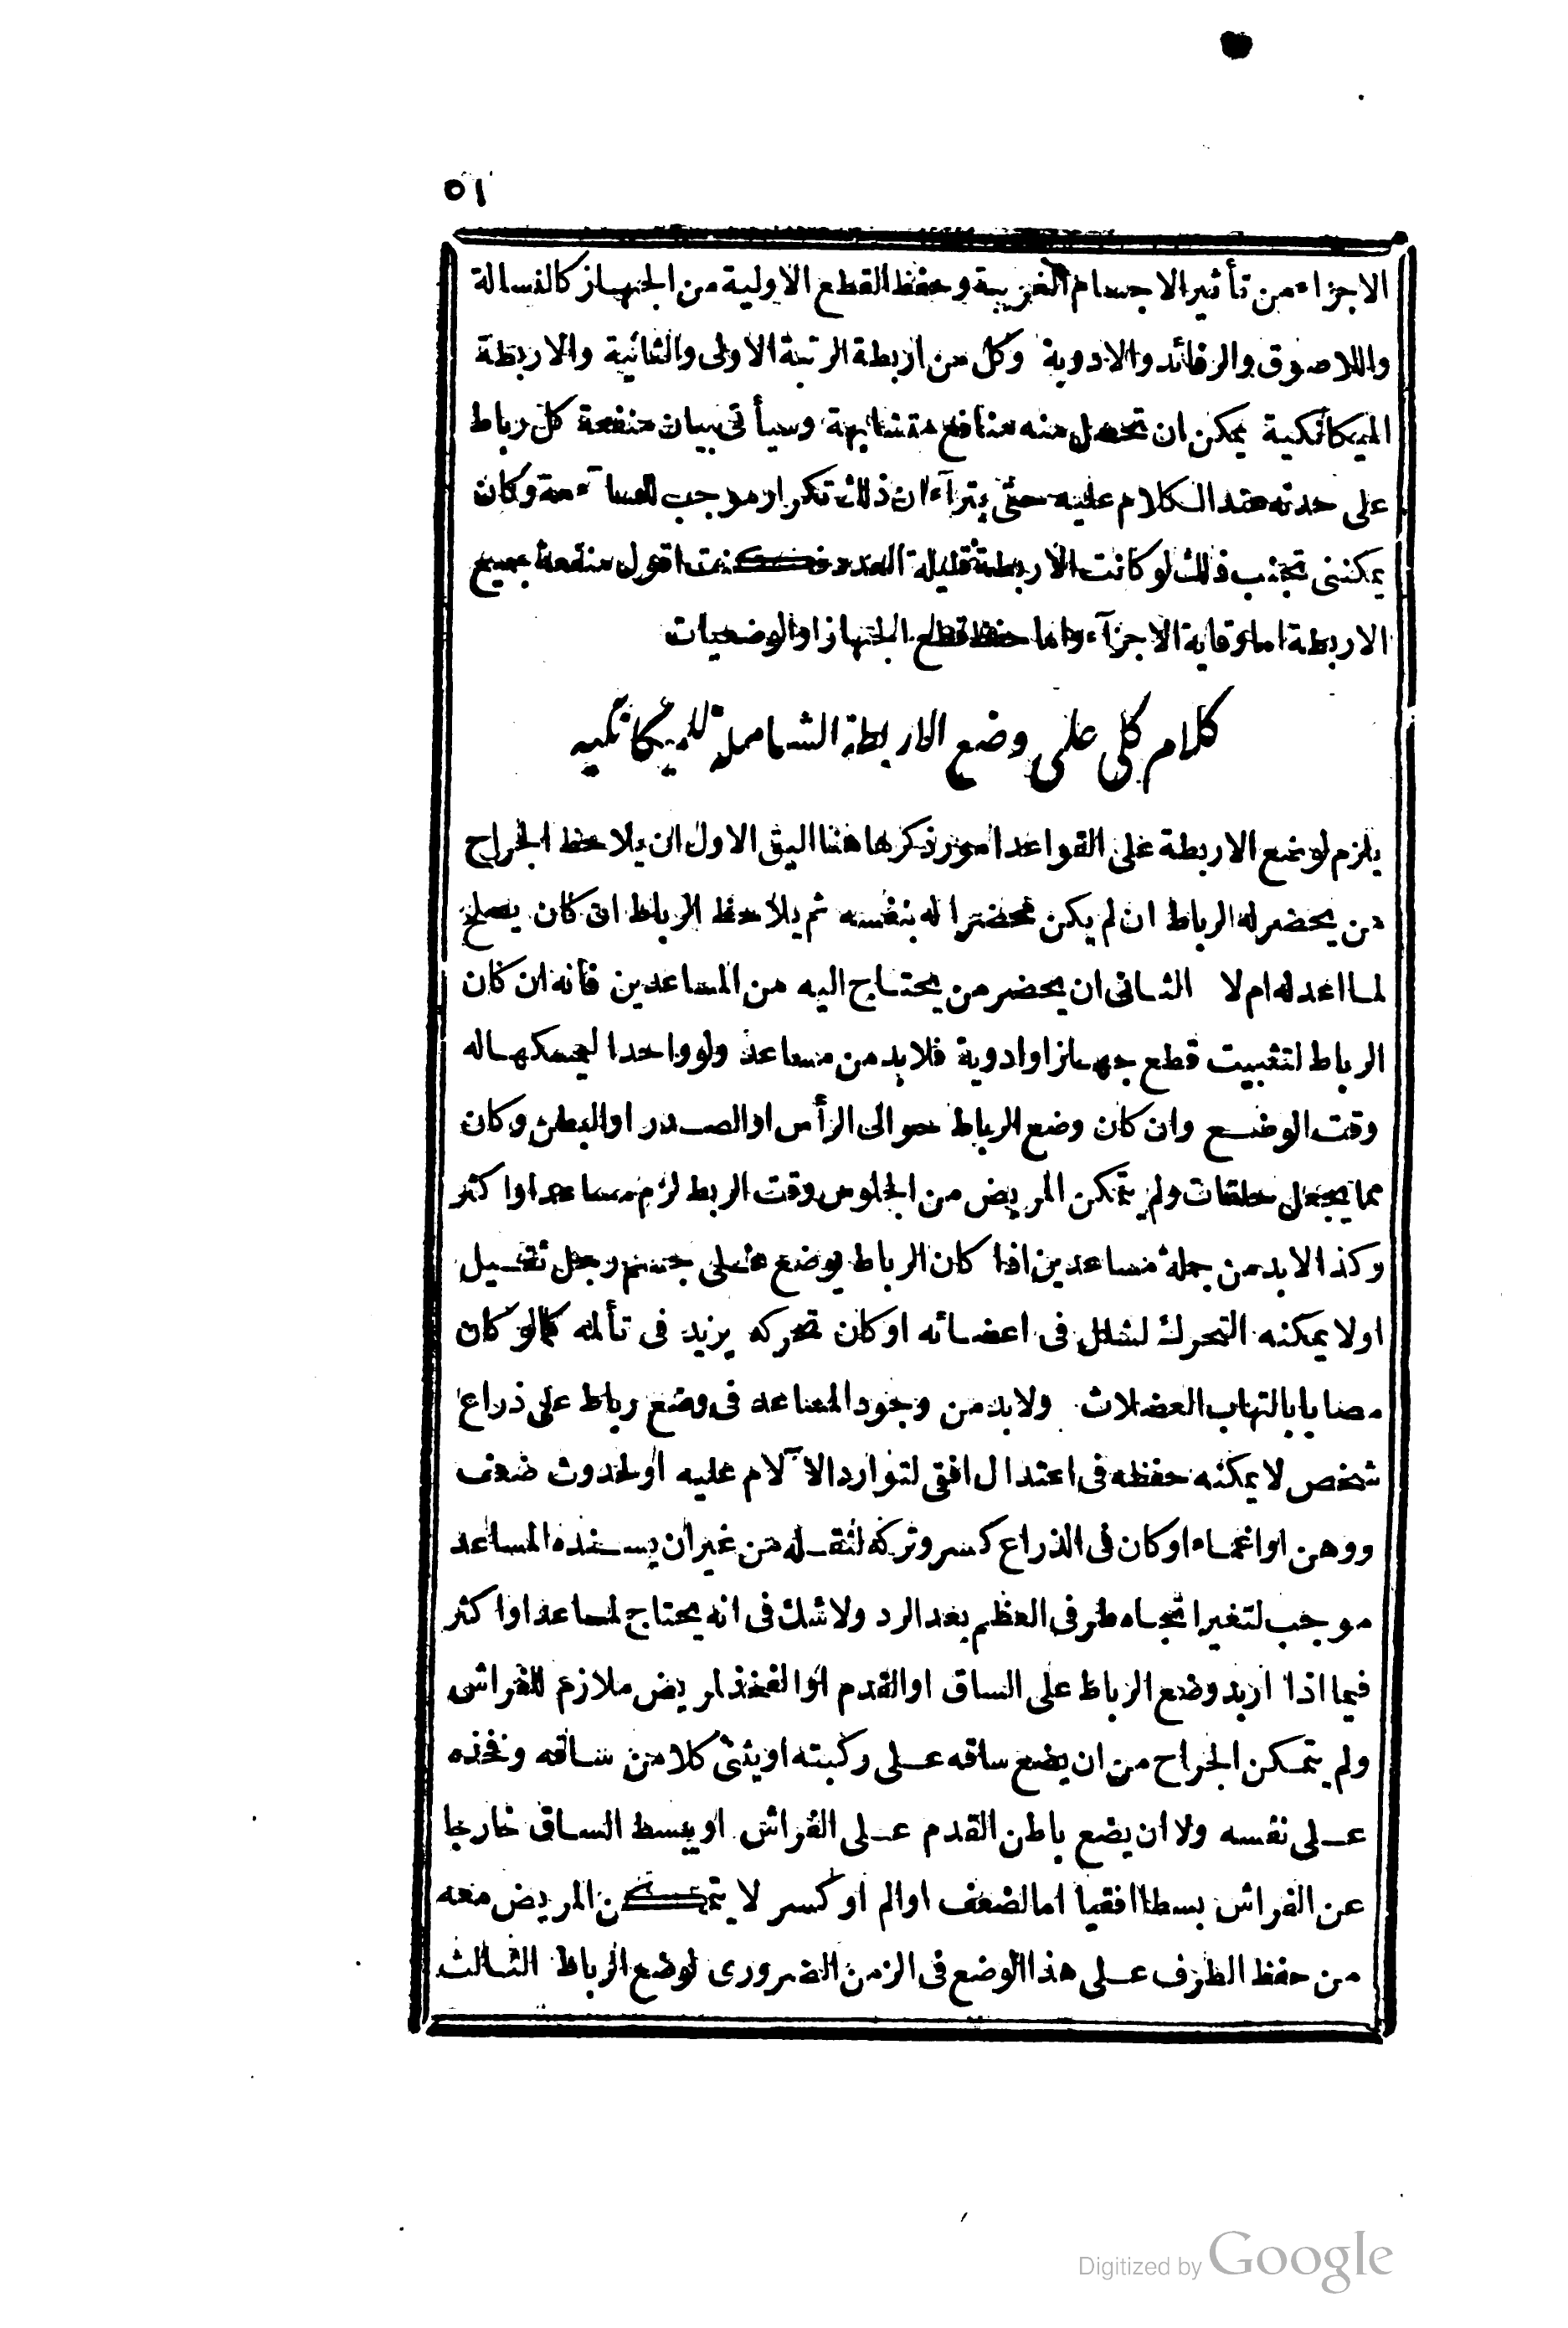 ٥١
الاجزاء من تأثير الاجسام الغريبة وحفظ القطع الاولية من الجهاز كالنسالة
واللاصوق والرفائد والادوية وكل من اربطة الرتبة الاولى والثانية والاربطة
الميكانكية يمكن ان تحصل منه منافع متشابهة وسيأتى بيان منفعة كل رباط
على حدته عند الكلام عليه حتى يترآءان ذلك تكرار موجب للسآءمة وكان
يمكننى تجنب ذلك لو كانت الاربطة قليلة العدد فكنت اقول منفعة جميع
الاربطة اما وقاية الاجزآء واما حفظ قطع الجهاز او الوضعيات
كلام كلى على وضع الاربطة الشاملة للميكانكيه
يلزم لوضع الاربطة على القواعد امور ذكرها هنا اليق الاول ان يلاحظ الجراح
من يحضر له الرباط ان لم يكن محضرا له بنفسه ثم يلاحظ الرباط ان كان يصلح
لما اعد له ام لا الثانى ان يحضر من يحتاج اليه من المساعدين فأنه ان كان
الرباط لتثبيت قطع جهاز او ادوية فلابد من مساعد ولو واحدا ليمسكها له
وقت الوضع وان كان وضع الرباط حوالى الرأس او الصدر او البطن وكان
مما يجعل حلقات ولم يتمكن المريض من الجلوس وقت الربط لزم مساعد او اكثر
وكذا لابد من جملة مساعدين اذا كان الرباط يوضع على جسم رجل ثقيل
اولا يمكنه التحرك لشلل فى اعضائه او كان تحركه يزيد فى تألمه كمالو كان
مصابا بالتهاب العضلات ولابد من وجود المساعد فى وضع رباط على ذراع
شخص لا يمكنه حفظه فى اعتدال افقى لتوارد الآلام عليه او لحدوث ضعف
ووهن او اغماء او كان فى الذراع كسر وتركه لثقله من غير ان يسنده المساعد
موجب لتغير اتجاه طرفى العظم بعد الرد ولا شك فى انه يحتاج لمساعد او اكثر
فيما اذا اريد وضع الرباط على الساق او القدم او الفخذ لمريض ملازم للفراش
ولم يتمكن الجراح من ان يضع ساقه على ركبته او يثنى كلا من ساقه وفخذه
على نفسه ولا ان يضع باطن القدم على الفراش او يبسط الساق خارجا
عن الفراش بسطا افقيا اما لضعف او الم او كسر لا يتمكن المريض معه
من حفظ الطرف على هذا الوضع فى الزمن الضرورى لوضع الرباط الثالث
Digitized by Google